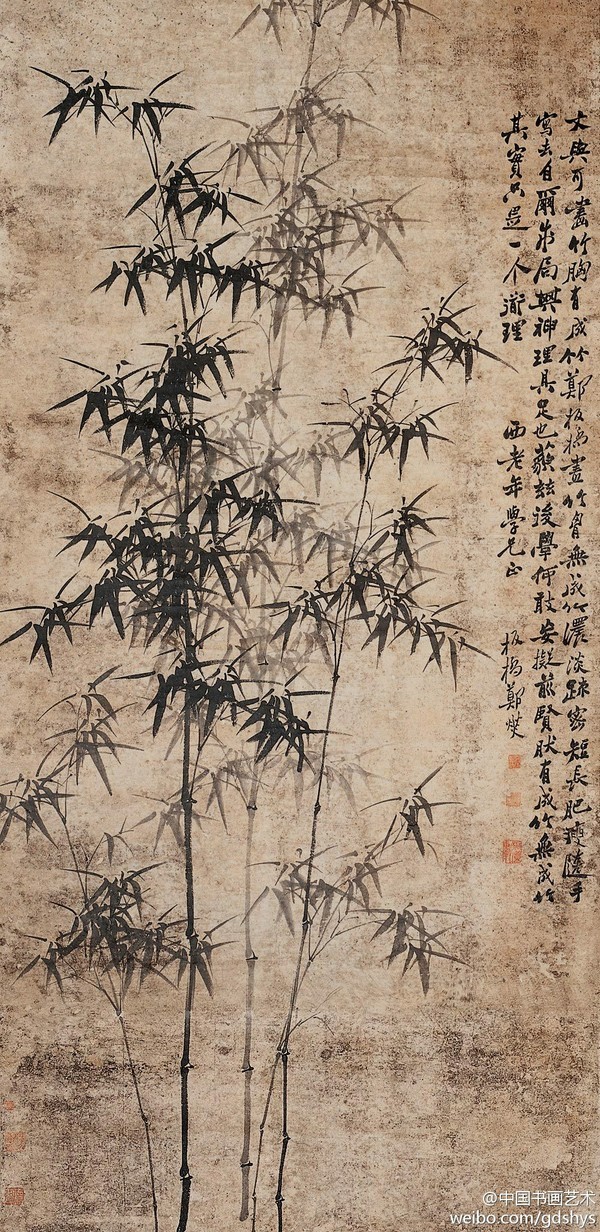 文與可畫竹胸有成竹鄭板橋畫竹胸無成竹濃淡踈密短長肥瘦隨手
寫去自爾成局其神理具足也藐兹後學何敢妄擬前賢然有成竹無成竹
其實只是一个道理
酉老年學兄正
板橋鄭燮
@中国书画艺术
weibo.com/gdshys